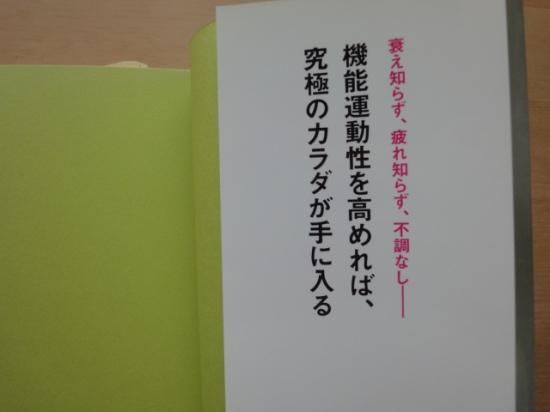 衰え知らず、疲れ知らず、不調なし――
機能運動性を高めれば、
究極のカラダが手に入る